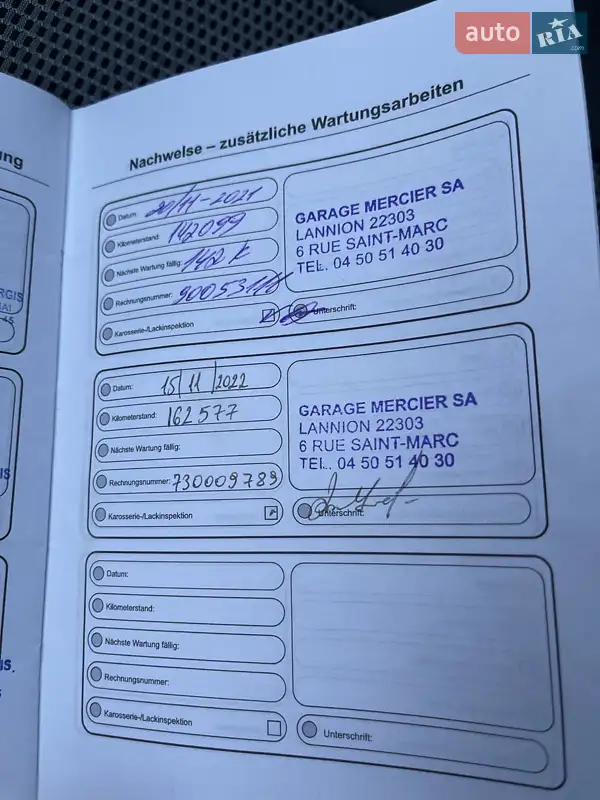 auto RIA .com
ung
Nachweise – zusätzliche Wartungsarbeiten
Datum: 20/11-2021
Kilometerstand: 142099
Nächste Wartung fällig: 142 K
Rechnungsnummer:
Karosserie-/Lackinspektion
GARAGE MERCIER SA
LANNION 22303
6 RUE SAINT-MARC
TEL. 04 50 51 40 30
Unterschrift:
Datum: 15/11/2022
Kilometerstand: 162577
Nächste Wartung fällig:
Rechnungsnummer: 730009789
Karosserie-/Lackinspektion
GARAGE MERCIER SA
LANNION 22303
6 RUE SAINT-MARC
TEL. 04 50 51 40 30
Unterschrift:
Datum:
Kilometerstand:
Nächste Wartung fällig:
Rechnungsnummer:
Karosserie-/Lackinspektion
Unterschrift: